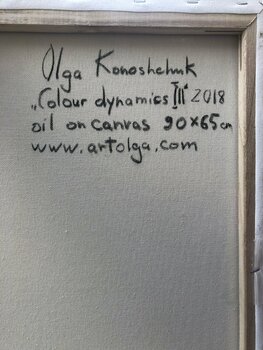 Olga Konoshchuk
„Colour dynamics III" 2018
oil on canvas 90x65cm
www.artolga.com